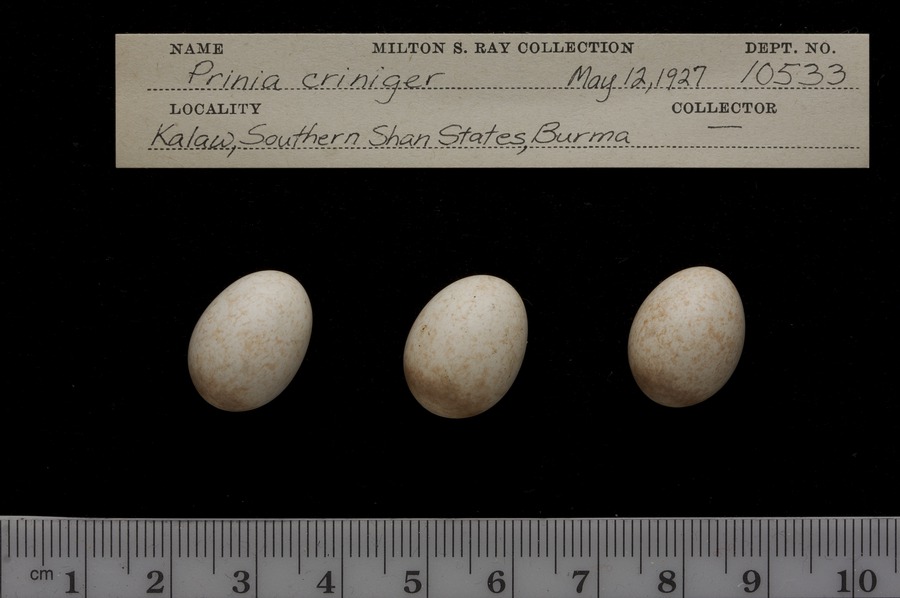 NAME MILTON S. RAY COLLECTION DEPT. NO.
Prinia criniger May 12, 1927 10533
LOCALITY COLLECTOR
Kalaw, Southern Shan States, Burma —
cm 1 2 3 4 5 6 7 8 9 10